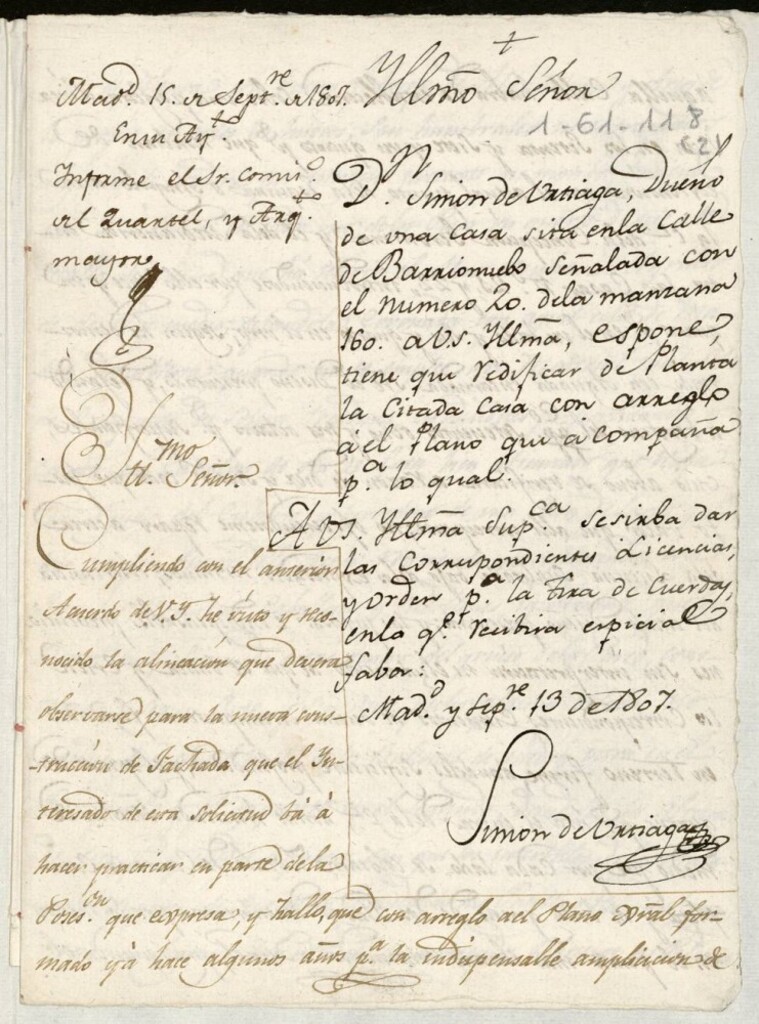 +
Yllmõ Señor
1-61-118
(2)
Mad.d 15. de Sept.re de 1807.
En su Ay.to
Informe el Sr. comis.o
del Quartel, y Arq.to
mayor
D.n Simon de Urtiaga, Dueño
de una Casa sita enla Calle
de Barrionuebo Señalada con
el numero 20. dela manzana
160. a Vs. Yllmã, espone,
tiene que redificar de Planta
la Citada Casa con arreglo
á el Plano que acompaña
p.a lo qual.
A Vs. Yllmã Sup.ca sesirba dar
las Correspondientes Licencias,
y orden p.a la tira de Cuerdas,
enla q.e recibira especial
fabor:
Mad.d y Sep.re 13 de 1807.
Simon de Urtiaga
Yll.mo Señor
Cumpliendo con el anterior
Acuerdo de V.Y. he visto y reco-
nocido la alineación que devera
observarse para la nueva cons-
-trucción de Fachada que el In-
teresado de esta solicitud bá á
hacer practicar en parte dela
Poses.on que expresa, y hallo, que con arreglo ael Plano gral for-
mado yá hace algunos años p.a la indispensable ampliacion de